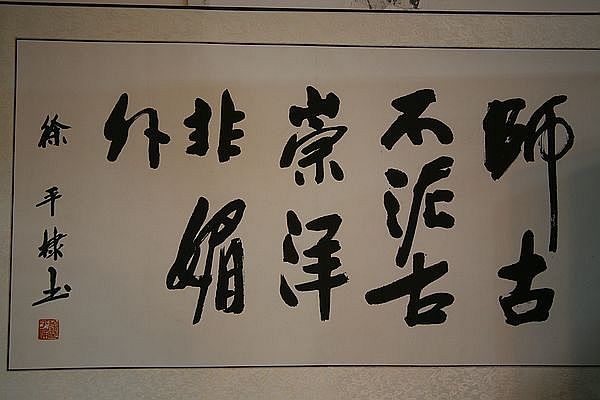 师古
不泥古
崇洋
非媚
外
徐平棣书